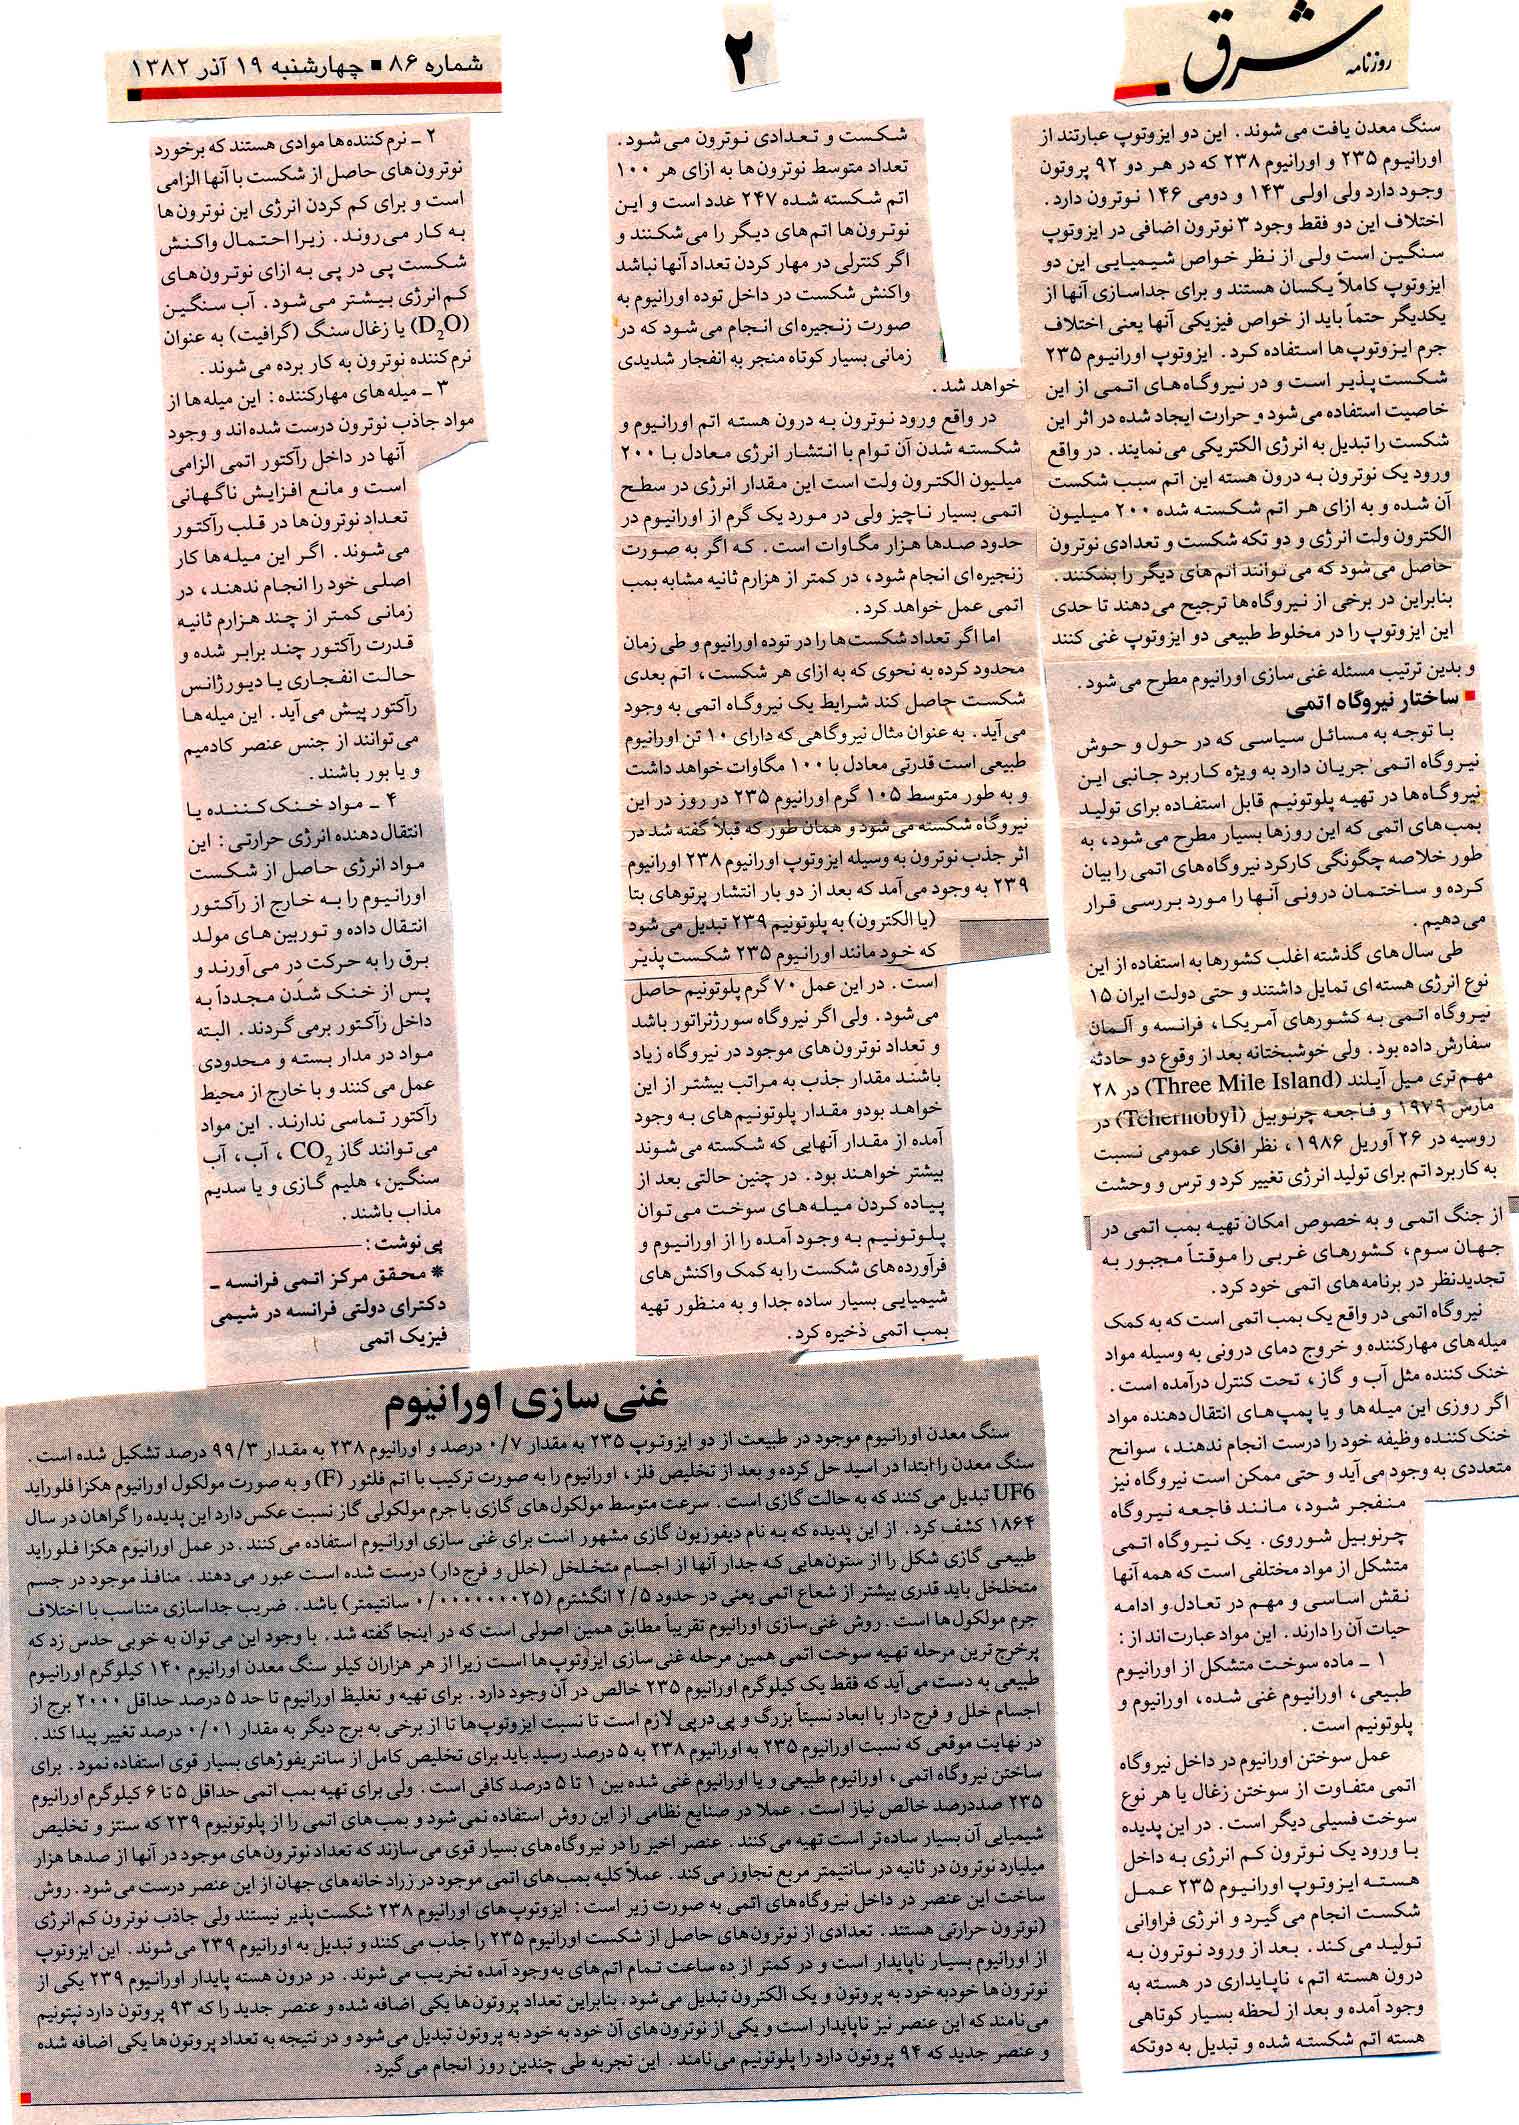 روزنامه شرق
۲
شماره ۸۶ ■ چهارشنبه ۱۹ آذر ۱۳۸۲
سنگ معدن یافت می شوند. این دو ایزوتوپ عبارتند از
اورانیوم ۲۳۵ و اورانیوم ۲۳۸ که در هر دو ۹۲ پروتون
وجود دارد ولی اولی ۱۴۳ و دومی ۱۴۶ نوترون دارد.
اختلاف این دو فقط وجود ۳ نوترون اضافی در ایزوتوپ
سنگین است ولی از نظر خواص شیمیایی این دو
ایزوتوپ کاملاً یکسان هستند و برای جداسازی آنها از
یکدیگر حتماً باید از خواص فیزیکی آنها یعنی اختلاف
جرم ایزوتوپ ها استفاده کرد. ایزوتوپ اورانیوم ۲۳۵
شکست پذیر است و در نیروگاه های اتمی از این
خاصیت استفاده می شود و حرارت ایجاد شده در اثر این
شکست را تبدیل به انرژی الکتریکی می نمایند. در واقع
ورود یک نوترون به درون هسته این اتم سبب شکست
آن شده و به ازای هر اتم شکسته شده ۲۰۰ میلیون
الکترون ولت انرژی و دو تکه شکست و تعدادی نوترون
حاصل می شود که می توانند اتم های دیگر را بشکنند.
بنابراین در برخی از نیروگاه ها ترجیح می دهند تا حدی
این ایزوتوپ را در مخلوط طبیعی دو ایزوتوپ غنی کنند
و بدین ترتیب مسئله غنی سازی اورانیوم مطرح می شود.
■ ساختار نیروگاه اتمی
با توجه به مسائل سیاسی که در حول و حوش
نیروگاه اتمی جریان دارد به ویژه کاربرد جانبی این
نیروگاه ها در تهیه پلوتونیم قابل استفاده برای تولید
بمب های اتمی که این روزها بسیار مطرح می شود، به
طور خلاصه چگونگی کارکرد نیروگاه های اتمی را بیان
کرده و ساختمان درونی آنها را مورد بررسی قرار
می دهیم.
طی سال های گذشته اغلب کشورها به استفاده از این
نوع انرژی هسته ای تمایل داشتند و حتی دولت ایران ۱۵
نیروگاه اتمی به کشورهای آمریکا، فرانسه و آلمان
سفارش داده بود. ولی خوشبختانه بعد از وقوع دو حادثه
مهم تری میل آیلند (Three Mile Island) در ۲۸
مارس ۱۹۷۹ و فاجعه چرنوبیل (Tchernobyl) در
روسیه در ۲۶ آوریل ۱۹۸۶، نظر افکار عمومی نسبت
به کاربرد اتم برای تولید انرژی تغییر کرد و ترس و وحشت
از جنگ اتمی و به خصوص امکان تهیه بمب اتمی در
جهان سوم، کشورهای غربی را موقتاً مجبور به
تجدیدنظر در برنامه های اتمی خود کرد.
نیروگاه اتمی در واقع یک بمب اتمی است که به کمک
میله های مهارکننده و خروج دمای درونی به وسیله مواد
خنک کننده مثل آب و گاز، تحت کنترل درآمده است.
اگر روزی این میله ها و یا پمپ های انتقال دهنده مواد
خنک کننده وظیفه خود را درست انجام ندهند، سوانح
متعددی به وجود می آید و حتی ممکن است نیروگاه نیز
منفجر شود، مانند فاجعه نیروگاه
چرنوبیل شوروی. یک نیروگاه اتمی
متشکل از مواد مختلفی است که همه آنها
نقش اساسی و مهم در تعادل و ادامه
حیات آن را دارند. این مواد عبارت اند از:
۱ ـ ماده سوخت متشکل از اورانیوم
طبیعی، اورانیوم غنی شده، اورانیوم و
پلوتونیم است.
عمل سوختن اورانیوم در داخل نیروگاه
اتمی متفاوت از سوختن زغال یا هر نوع
سوخت فسیلی دیگر است. در این پدیده
با ورود یک نوترون کم انرژی به داخل
هسته ایزوتوپ اورانیوم ۲۳۵ عمل
شکست انجام می گیرد و انرژی فراوانی
تولید می کند. بعد از ورود نوترون به
درون هسته اتم، ناپایداری در هسته به
وجود آمده و بعد از لحظه بسیار کوتاهی
هسته اتم شکسته شده و تبدیل به دوتکه
شکست و تعدادی نوترون می شود.
تعداد متوسط نوترون ها به ازای هر ۱۰۰
اتم شکسته شده ۲۴۷ عدد است و این
نوترون ها اتم های دیگر را می شکنند و
اگر کنترلی در مهار کردن تعداد آنها نباشد
واکنش شکست در داخل توده اورانیوم به
صورت زنجیره ای انجام می شود که در
زمانی بسیار کوتاه منجر به انفجار شدیدی
خواهد شد.
در واقع ورود نوترون به درون هسته اتم اورانیوم و
شکسته شدن آن توام با انتشار انرژی معادل با ۲۰۰
میلیون الکترون ولت است این مقدار انرژی در سطح
اتمی بسیار ناچیز ولی در مورد یک گرم از اورانیوم در
حدود صدها هزار مگاوات است. که اگر به صورت
زنجیره ای انجام شود، در کمتر از هزارم ثانیه مشابه بمب
اتمی عمل خواهد کرد.
اما اگر تعداد شکست ها را در توده اورانیوم و طی زمان
محدود کرده به نحوی که به ازای هر شکست، اتم بعدی
شکست حاصل کند شرایط یک نیروگاه اتمی به وجود
می آید. به عنوان مثال نیروگاهی که دارای ۱۰ تن اورانیوم
طبیعی است قدرتی معادل با ۱۰۰ مگاوات خواهد داشت
و به طور متوسط ۱۰۵ گرم اورانیوم ۲۳۵ در روز در این
نیروگاه شکسته می شود و همان طور که قبلاً گفته شد در
اثر جذب نوترون به وسیله ایزوتوپ اورانیوم ۲۳۸ اورانیوم
۲۳۹ به وجود می آمد که بعد از دو بار انتشار پرتوهای بتا
(یا الکترون) به پلوتونیم ۲۳۹ تبدیل می شود
که خود مانند اورانیوم ۲۳۵ شکست پذیر
است. در این عمل ۷۰ گرم پلوتونیم حاصل
می شود. ولی اگر نیروگاه سورژنراتور باشد
و تعداد نوترون های موجود در نیروگاه زیاد
باشند مقدار جذب به مراتب بیشتر از این
خواهد بودو مقدار پلوتونیم های به وجود
آمده از مقدار آنهایی که شکسته می شوند
بیشتر خواهند بود. در چنین حالتی بعد از
پیاده کردن میله های سوخت می توان
پلوتونیم به وجود آمده را از اورانیوم و
فرآورده های شکست را به کمک واکنش های
شیمیایی بسیار ساده جدا و به منظور تهیه
بمب اتمی ذخیره کرد.
۲ ـ نرم کننده ها موادی هستند که برخورد
نوترون های حاصل از شکست با آنها الزامی
است و برای کم کردن انرژی این نوترون ها
به کار می روند. زیرا احتمال واکنش
شکست پی در پی به ازای نوترون های
کم انرژی بیشتر می شود. آب سنگین
(D₂O) یا زغال سنگ (گرافیت) به عنوان
نرم کننده نوترون به کار برده می شوند.
۳ ـ میله های مهارکننده: این میله ها از
مواد جاذب نوترون درست شده اند و وجود
آنها در داخل رآکتور اتمی الزامی
است و مانع افزایش ناگهانی
تعداد نوترون ها در قلب رآکتور
می شوند. اگر این میله ها کار
اصلی خود را انجام ندهند، در
زمانی کمتر از چند هزارم ثانیه
قدرت رآکتور چند برابر شده و
حالت انفجاری یا دیورژانس
رآکتور پیش می آید. این میله ها
می توانند از جنس عنصر کادمیم
و یا بور باشند.
۴ ـ مواد خنک کننده یا
انتقال دهنده انرژی حرارتی: این
مواد انرژی حاصل از شکست
اورانیوم را به خارج از رآکتور
انتقال داده و توربین های مولد
برق را به حرکت در می آورند و
پس از خنک شدن مجدداً به
داخل رآکتور برمی گردند. البته
مواد در مدار بسته و محدودی
عمل می کنند و با خارج از محیط
رآکتور تماسی ندارند. این مواد
می توانند گاز CO₂ ، آب، آب
سنگین، هلیم گازی و یا سدیم
مذاب باشند.
پی نوشت:
* محقق مرکز اتمی فرانسه ـ
دکترای دولتی فرانسه در شیمی
فیزیک اتمی
غنی سازی اورانیوم
سنگ معدن اورانیوم موجود در طبیعت از دو ایزوتوپ ۲۳۵ به مقدار ۰/۷ درصد و اورانیوم ۲۳۸ به مقدار ۹۹/۳ درصد تشکیل شده است.
سنگ معدن را ابتدا در اسید حل کرده و بعد از تخلیص فلز، اورانیوم را به صورت ترکیب با اتم فلئور (F) و به صورت مولکول اورانیوم هکزا فلوراید
UF6 تبدیل می کنند که به حالت گازی است. سرعت متوسط مولکول های گازی با جرم مولکولی گاز نسبت عکس دارد این پدیده را گراهان در سال
۱۸۶۴ کشف کرد. از این پدیده که به نام دیفوزیون گازی مشهور است برای غنی سازی اورانیوم استفاده می کنند. در عمل اورانیوم هکزا فلوراید
طبیعی گازی شکل را از ستون هایی که جدار آنها از اجسام متخلخل (خلل و فرج دار) درست شده است عبور می دهند. منافذ موجود در جسم
متخلخل باید قدری بیشتر از شعاع اتمی یعنی در حدود ۲/۵ انگشترم (۰/۰۰۰۰۰۰۰۲۵ سانتیمتر) باشد. ضریب جداسازی متناسب با اختلاف
جرم مولکول ها است. روش غنی سازی اورانیوم تقریباً مطابق همین اصولی است که در اینجا گفته شد. با وجود این می توان به خوبی حدس زد که
پرخرج ترین مرحله تهیه سوخت اتمی همین مرحله غنی سازی ایزوتوپ ها است زیرا از هر هزاران کیلو سنگ معدن اورانیوم ۱۴۰ کیلوگرم اورانیوم
طبیعی به دست می آید که فقط یک کیلوگرم اورانیوم ۲۳۵ خالص در آن وجود دارد. برای تهیه و تغلیظ اورانیوم تا حد ۵ درصد حداقل ۲۰۰۰ برج از
اجسام خلل و فرج دار با ابعاد نسبتاً بزرگ و پی درپی لازم است تا نسبت ایزوتوپ ها تا از برخی به برج دیگر به مقدار ۰/۰۱ درصد تغییر پیدا کند.
در نهایت موقعی که نسبت اورانیوم ۲۳۵ به اورانیوم ۲۳۸ به ۵ درصد رسید باید برای تخلیص کامل از سانتریفوژهای بسیار قوی استفاده نمود. برای
ساختن نیروگاه اتمی، اورانیوم طبیعی و یا اورانیوم غنی شده بین ۱ تا ۵ درصد کافی است. ولی برای تهیه بمب اتمی حداقل ۵ تا ۶ کیلوگرم اورانیوم
۲۳۵ صددرصد خالص نیاز است. عملا در صنایع نظامی از این روش استفاده نمی شود و بمب های اتمی را از پلوتونیوم ۲۳۹ که سنتز و تخلیص
شیمیایی آن بسیار ساده تر است تهیه می کنند. عنصر اخیر را در نیروگاه های بسیار قوی می سازند که تعداد نوترون های موجود در آنها از صدها هزار
میلیارد نوترون در ثانیه در سانتیمتر مربع تجاوز می کند. عملاً کلیه بمب های اتمی موجود در زراد خانه های جهان از این عنصر درست می شود. روش
ساخت این عنصر در داخل نیروگاه های اتمی به صورت زیر است: ایزوتوپ های اورانیوم ۲۳۸ شکست پذیر نیستند ولی جاذب نوترون کم انرژی
(نوترون حرارتی هستند. تعدادی از نوترون های حاصل از شکست اورانیوم ۲۳۵ را جذب می کنند و تبدیل به اورانیوم ۲۳۹ می شوند. این ایزوتوپ
از اورانیوم بسیار ناپایدار است و در کمتر از ده ساعت تمام اتم های به وجود آمده تخریب می شوند. در درون هسته پایدار اورانیوم ۲۳۹ یکی از
نوترون ها خودبه خود به پروتون و یک الکترون تبدیل می شود. بنابراین تعداد پروتون ها یکی اضافه شده و عنصر جدید را که ۹۳ پروتون دارد نپتونیم
می نامند که این عنصر نیز ناپایدار است و یکی از نوترون های آن خود به خود به پروتون تبدیل می شود و در نتیجه به تعداد پروتون ها یکی اضافه شده
و عنصر جدید که ۹۴ پروتون دارد را پلوتونیم می نامند. این تجربه طی چندین روز انجام می گیرد.